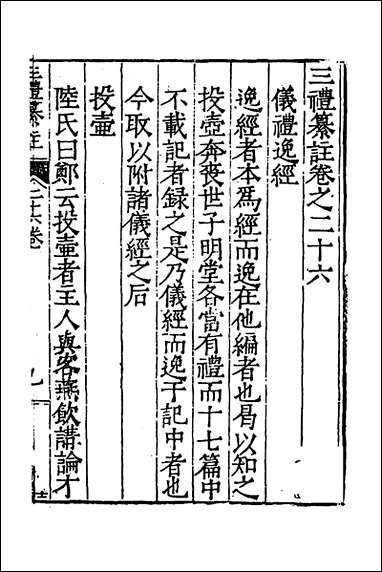 三禮纂註卷之二十六
儀禮逸經
逸經者本爲經而逸在他編者也曷以知之
投壺奔喪世子明堂各當有禮而十七篇中
不載記者録之是乃儀經而逸于記中者也
今取以附諸儀經之后
投壺
陸氏曰鄭云投壺者主人與客燕飲講論才
三禮纂註
二十六卷